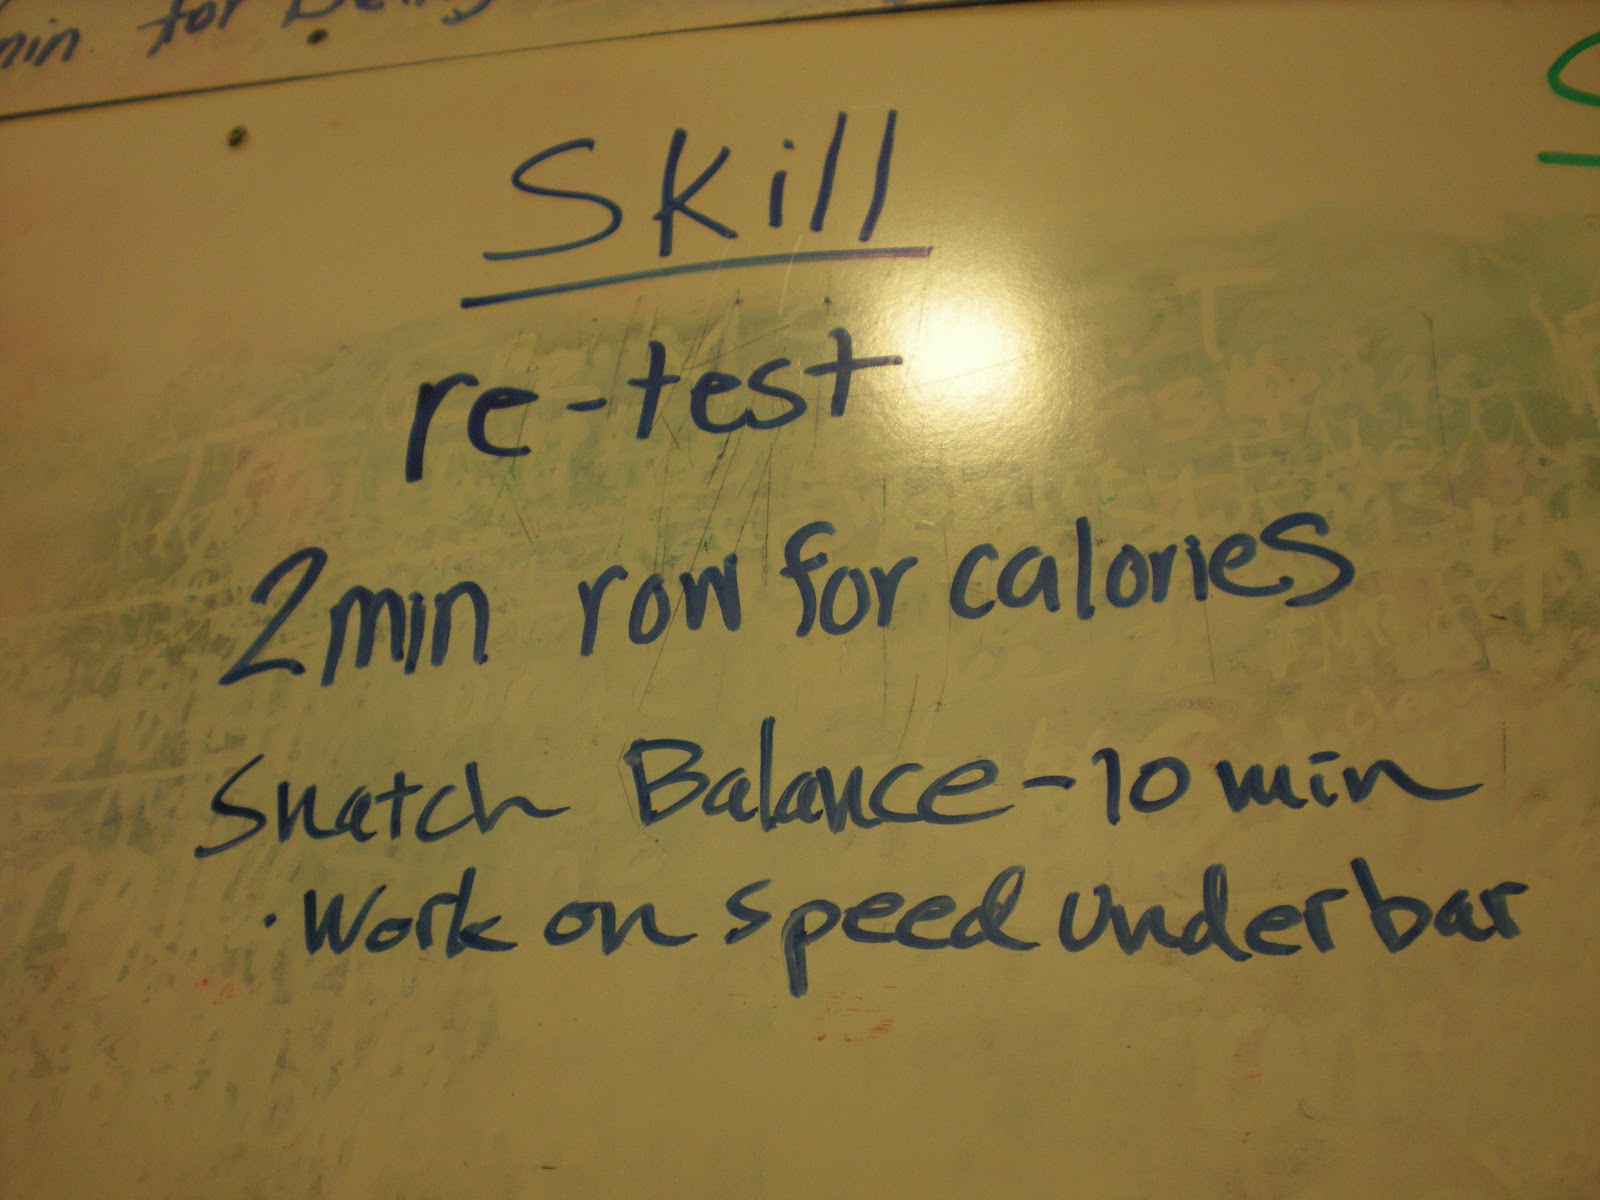 min. for being
Skill
re-test
2 min row for calories
Snatch Balance - 10 min
· Work on speed under bar